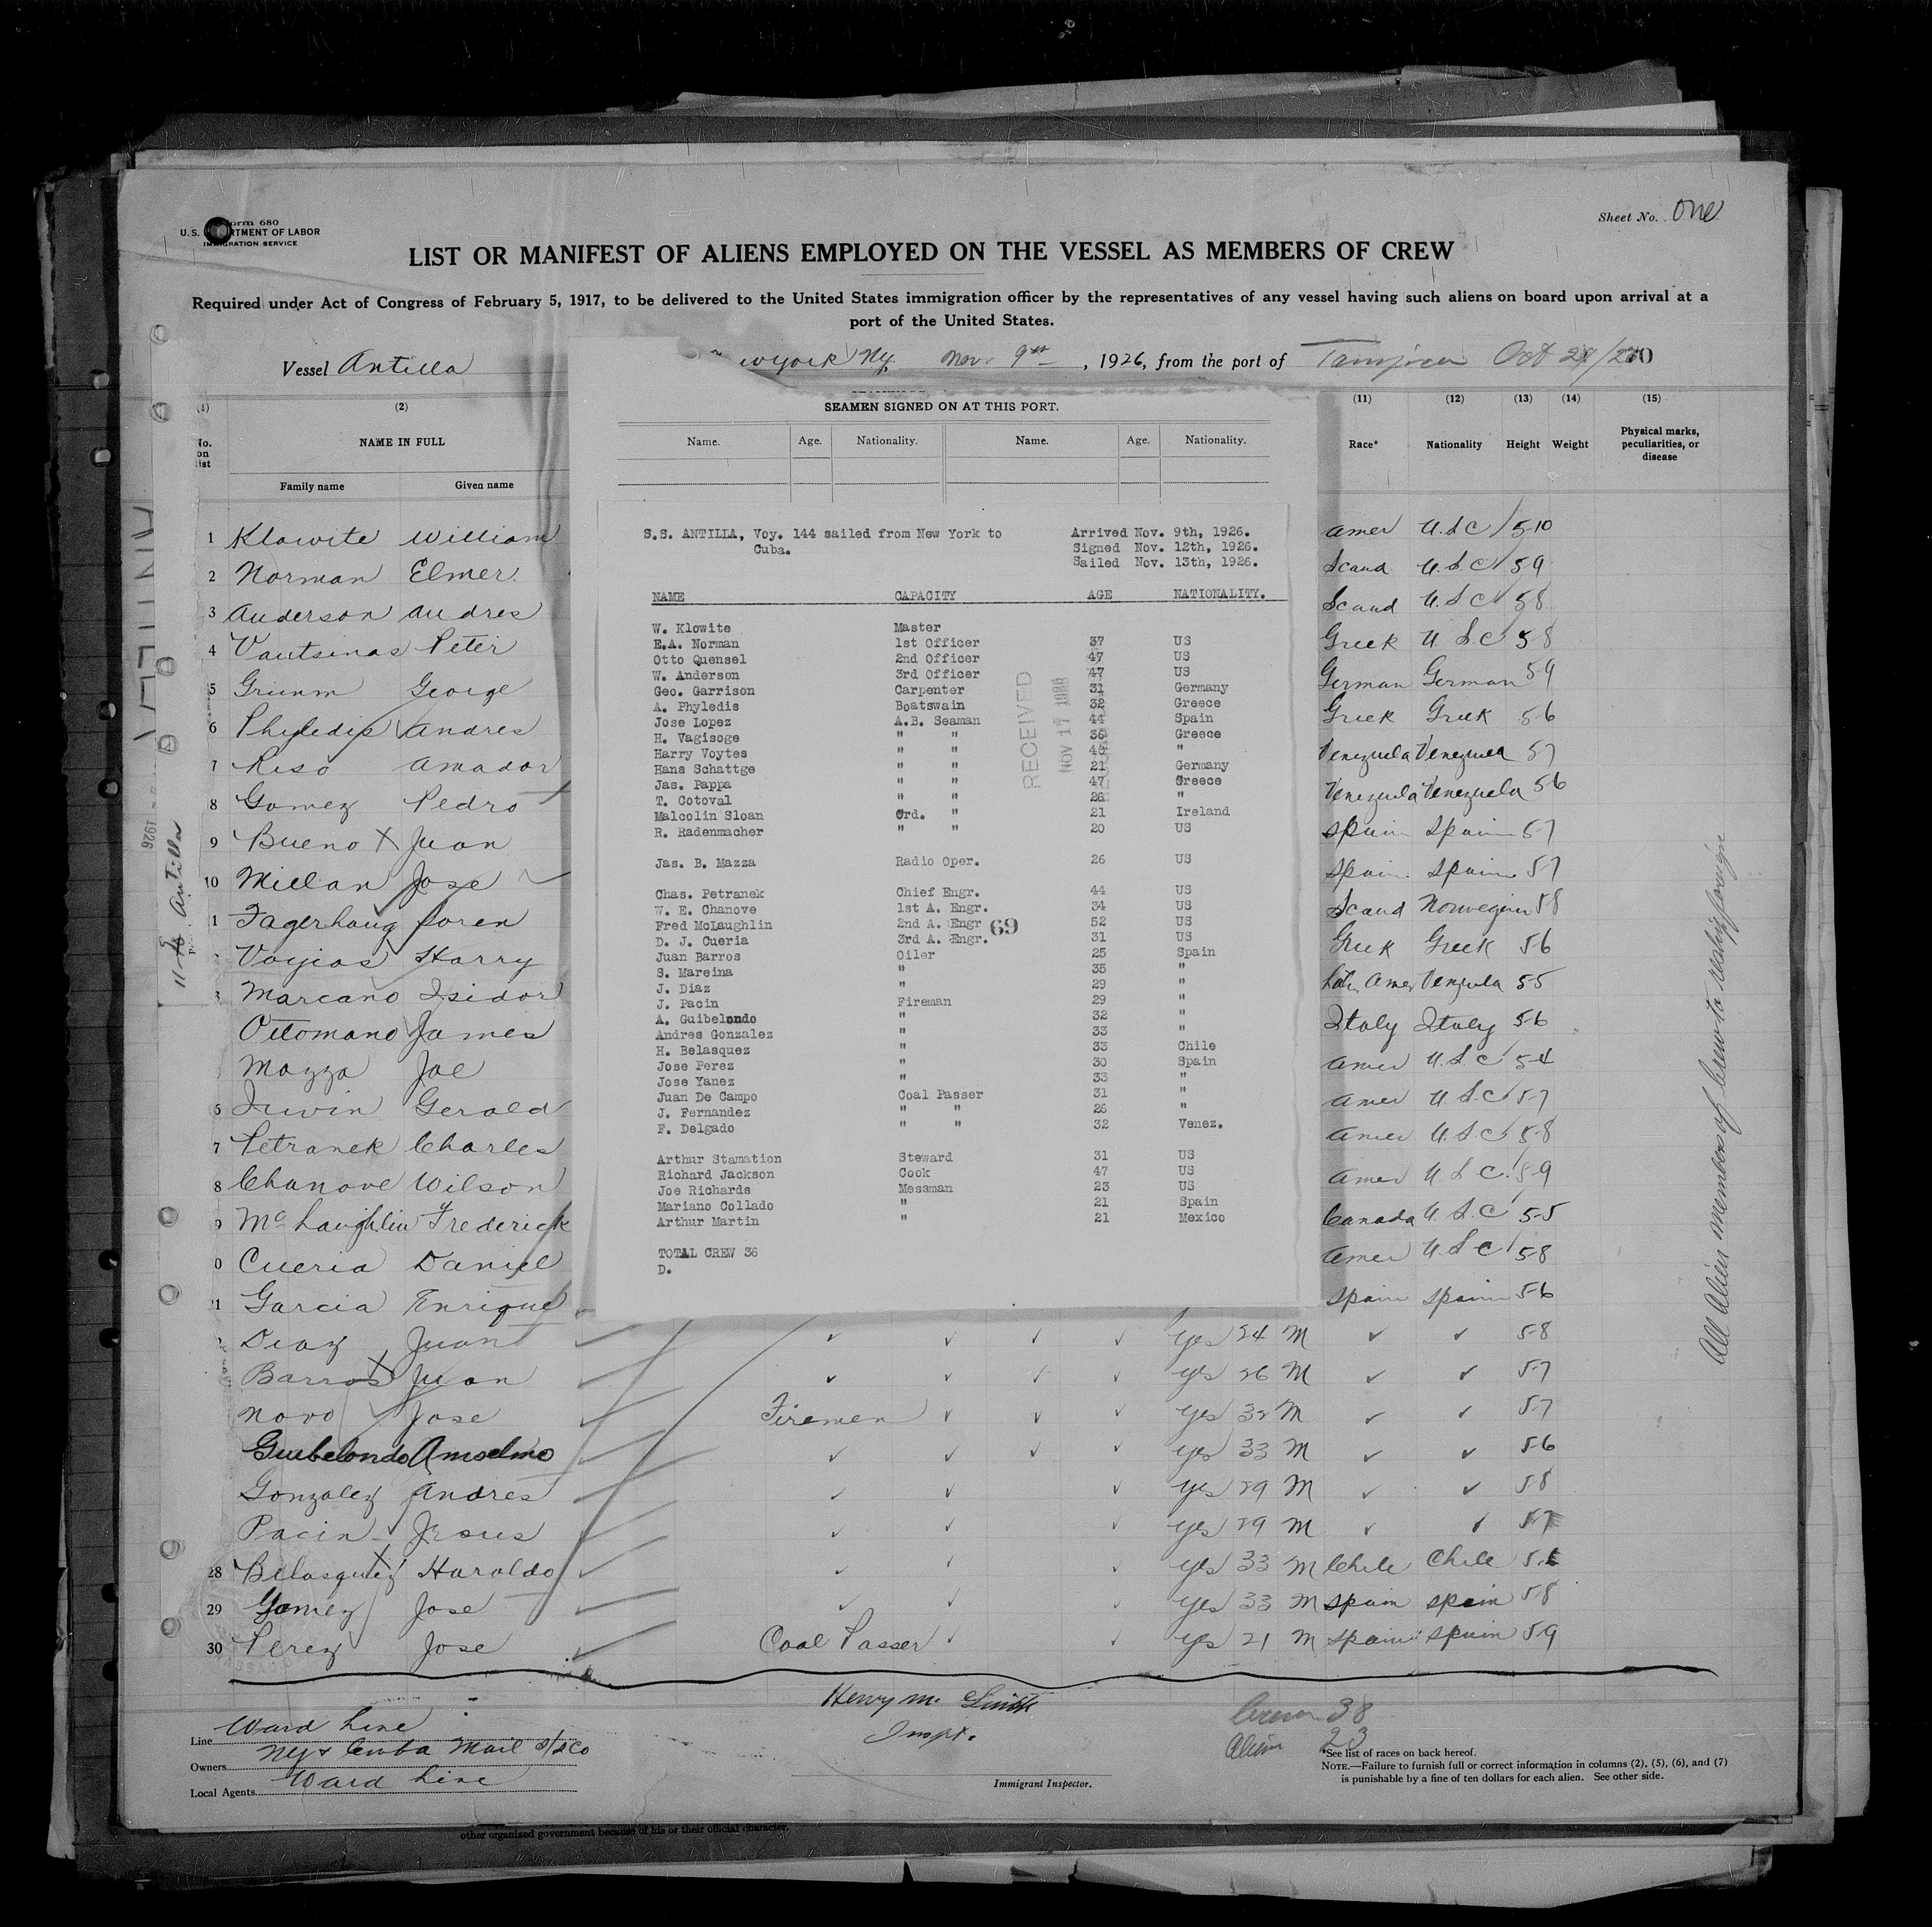 Form 680
U.S. DEPARTMENT OF LABOR
IMMIGRATION SERVICE
Sheet No. One
LIST OR MANIFEST OF ALIENS EMPLOYED ON THE VESSEL AS MEMBERS OF CREW
Required under Act of Congress of February 5, 1917, to be delivered to the United States immigration officer by the representatives of any vessel having such aliens on board upon arrival at a
port of the United States.
Vessel Antilla
ew york Ny. Nov. 9th, 1926, from the port of Tampico Oct
(1) (2) (11) (12) (13) (14) (15)
No. on list
NAME IN FULL
Family name Given name
Race* Nationality Height Weight Physical marks, peculiarities, or disease
SEAMEN SIGNED ON AT THIS PORT.
Name. Age. Nationality. Name. Age. Nationality.
S.S. ANTILLA, Voy. 144 sailed from New York to Arrived Nov. 9th, 1926.
Cuba. Signed Nov. 12th, 1926.
Sailed Nov. 13th, 1926.
NAME CAPACITY AGE NATIONALITY.
W. Klowite Master
E.A. Norman 1st Officer 37 US
Otto Quensel 2nd Officer 47 US
W. Anderson 3rd Officer 47 US
Geo. Garrison Carpenter 31 Germany
A. Phyledis Boatswain 32 Greece
Jose Lopez A.B. Seaman 44 Spain
H. Vagisoge " " 35 Greece
Harry Voytes " " 45 "
Hans Schattge " " 21 Germany
Jas. Pappa " " 47 Greece
T. Cotoval " " 26 "
Malcolin Sloan Ord. " 21 Ireland
R. Radenmacher " " 20 US
Jas. B. Mazza Radio Oper. 26 US
Chas. Petranek Chief Engr. 44 US
W. E. Chanove 1st A. Engr. 34 US
Fred McLaughlin 2nd A. Engr 52 US
D. J. Cueria 3rd A. Engr. 31 US
Juan Barros Oiler 25 Spain
S. Mareina " 35 "
J. Diaz " 29 "
J. Pacin Fireman 29 "
A. Guibelondo " 32 "
Andres Gonzalez " 33 "
H. Belasquez " 33 Chile
Jose Perez " 30 Spain
Jose Yanez " 33 "
Juan De Campo Coal Passer 31 "
J. Fernandez " " 26 "
F. Delgado " " 32 Venez.
Arthur Stamation Steward 31 US
Richard Jackson Cook 47 US
Joe Richards Messman 23 US
Mariano Collado " 21 Spain
Arthur Martin " 21 Mexico
TOTAL CREW 36
D.
RECEIVED
NOV 17 1926
69
1 Klowite William Amer U.S.C 5-10
2 Norman Elmer. Scand U.S.C 5 9
3 Anderson Andres Scand U.S.C 5 8
4 Vautsinas Peter Greek U.S.C 5 8
5 Grunm George German German 5 9
6 Phyledis Andres Greek Greek 5-6
7 Riso Amador Venezuela Venezuela 5 7
8 Gomez Pedro Venezuela Venezuela 5-6
9 Bueno X Juan Spain Spain 5-7
10 Millan Jose Spain Spain 5-7
1 Fagerhaug Soren Scand Norwegian 5 8
Voyias Harry Greek Greek 5-6
3 Marcano Isidor Latin Amer Venzuela 5-5
Ottomano James Italy Italy 5-6
Mazza Joe Amer U.S.C 5-4
6 Irwin Gerald Amer U.S.C 5-7
7 Petranek Charles Amer U.S.C 5-8
8 Chanove Wilson Amer U.S.C. 5-9
9 McLaughlin Frederick Canada U.S.C 5-5
0 Cueria Daniel Amer U.S.C 5-8
21 Garcia Enrique Spain Spain 5-6
Diaz Juan yes 24 M 5-8
Barros X Juan yes 26 M 5-7
Novo Jose Firemen yes 32 M 5-7
Guibelondo Anselmo yes 33 M 5-6
Gonzalez Andres yes 29 M 5-8
Pacin Jesus yes 29 M 5-7
28 Belasquez X Haroldo yes 33 M Chile Chile
29 Gomez Jose yes 33 M Spain Spain 5-8
30 Perez Jose Coal Passer yes 21 M Spain Spain 5-9
All Alien members of Crew to reship foreign
ANTILLA
1926
Antilla
Line Ward Line
Owners Ny & Cuba Mail S/S Co
Local Agents Ward Line
Henry M. Smith
Inspt.
Immigrant Inspector.
Crew 38
Alien 23
*See list of races on back hereof.
NOTE.—Failure to furnish full or correct information in columns (2), (5), (6), and (7)
is punishable by a fine of ten dollars for each alien. See other side.
other organized government because of his or their official character.